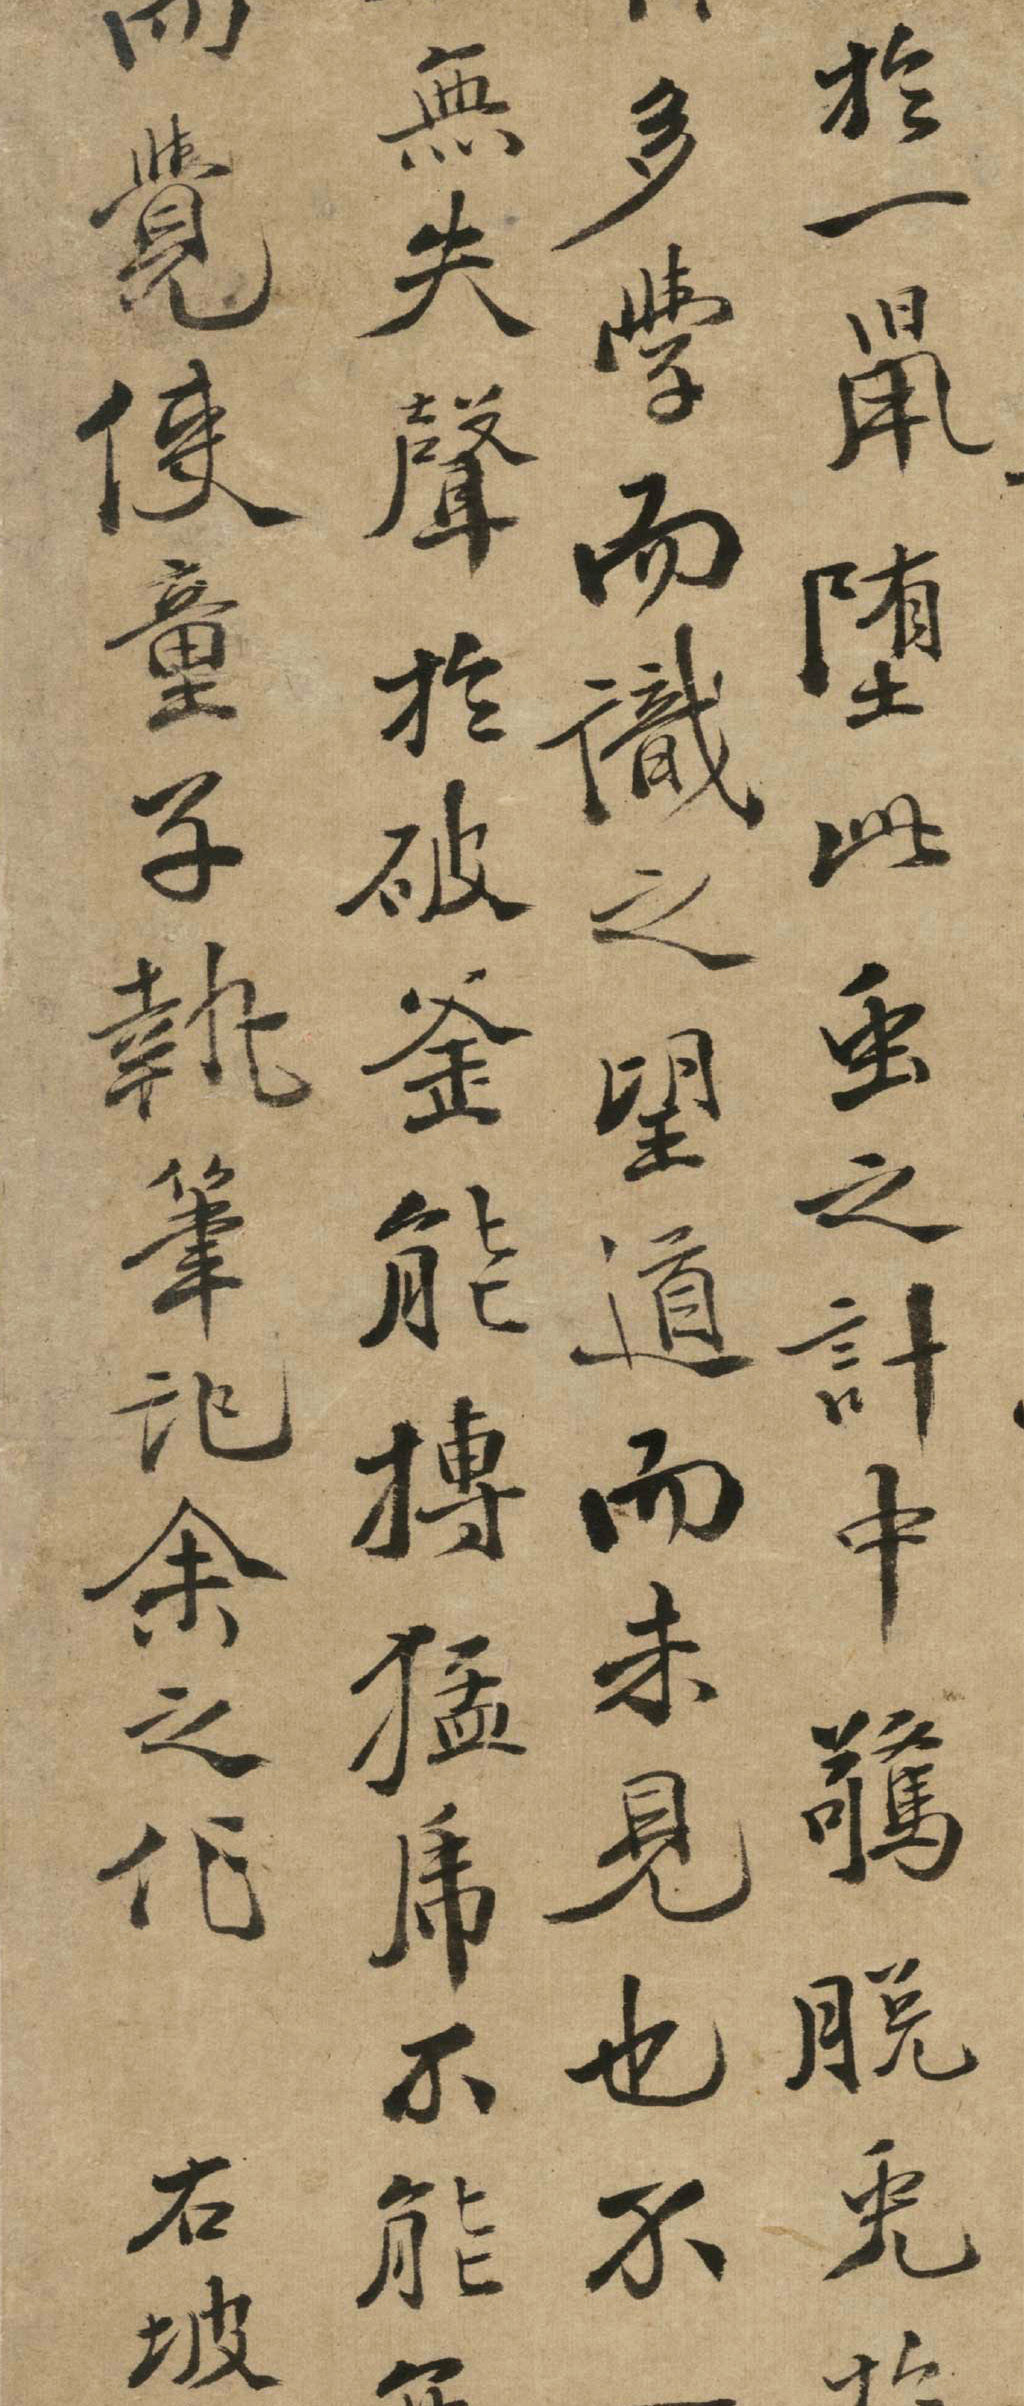 於一鼠墮此虫之計中驚脫兎於
多學而識之望道而未見也不一
無失聲於破釜能搏猛虎不能無
而覺使童子執筆記余之作　右坡